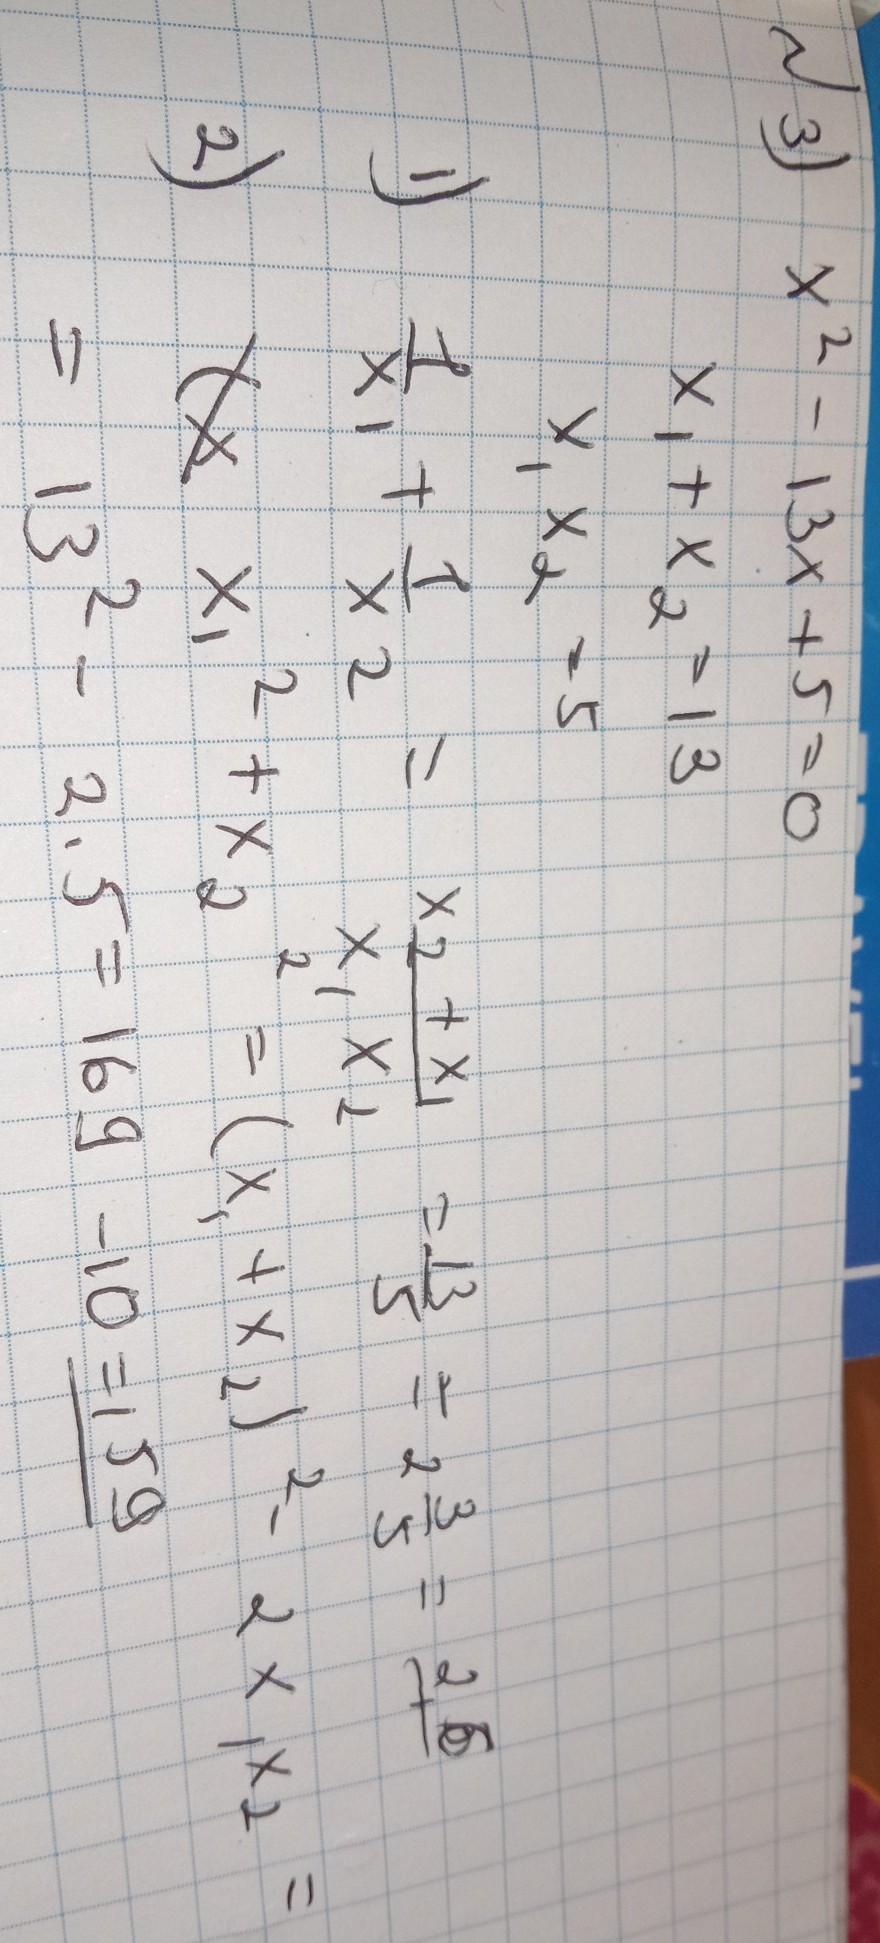 №3) x² - 13x + 5 = 0
x₁ + x₂ = 13
x₁ x₂ = 5
1) 1/x₁ + 1/x₂ = (x₂ + x₁)/(x₁ x₂) = 13/5 = 2 3/5 = 2,6
2) x₁² + x₂² = (x₁ + x₂)² - 2x₁x₂ =
= 13² - 2·5 = 169 - 10 = 159